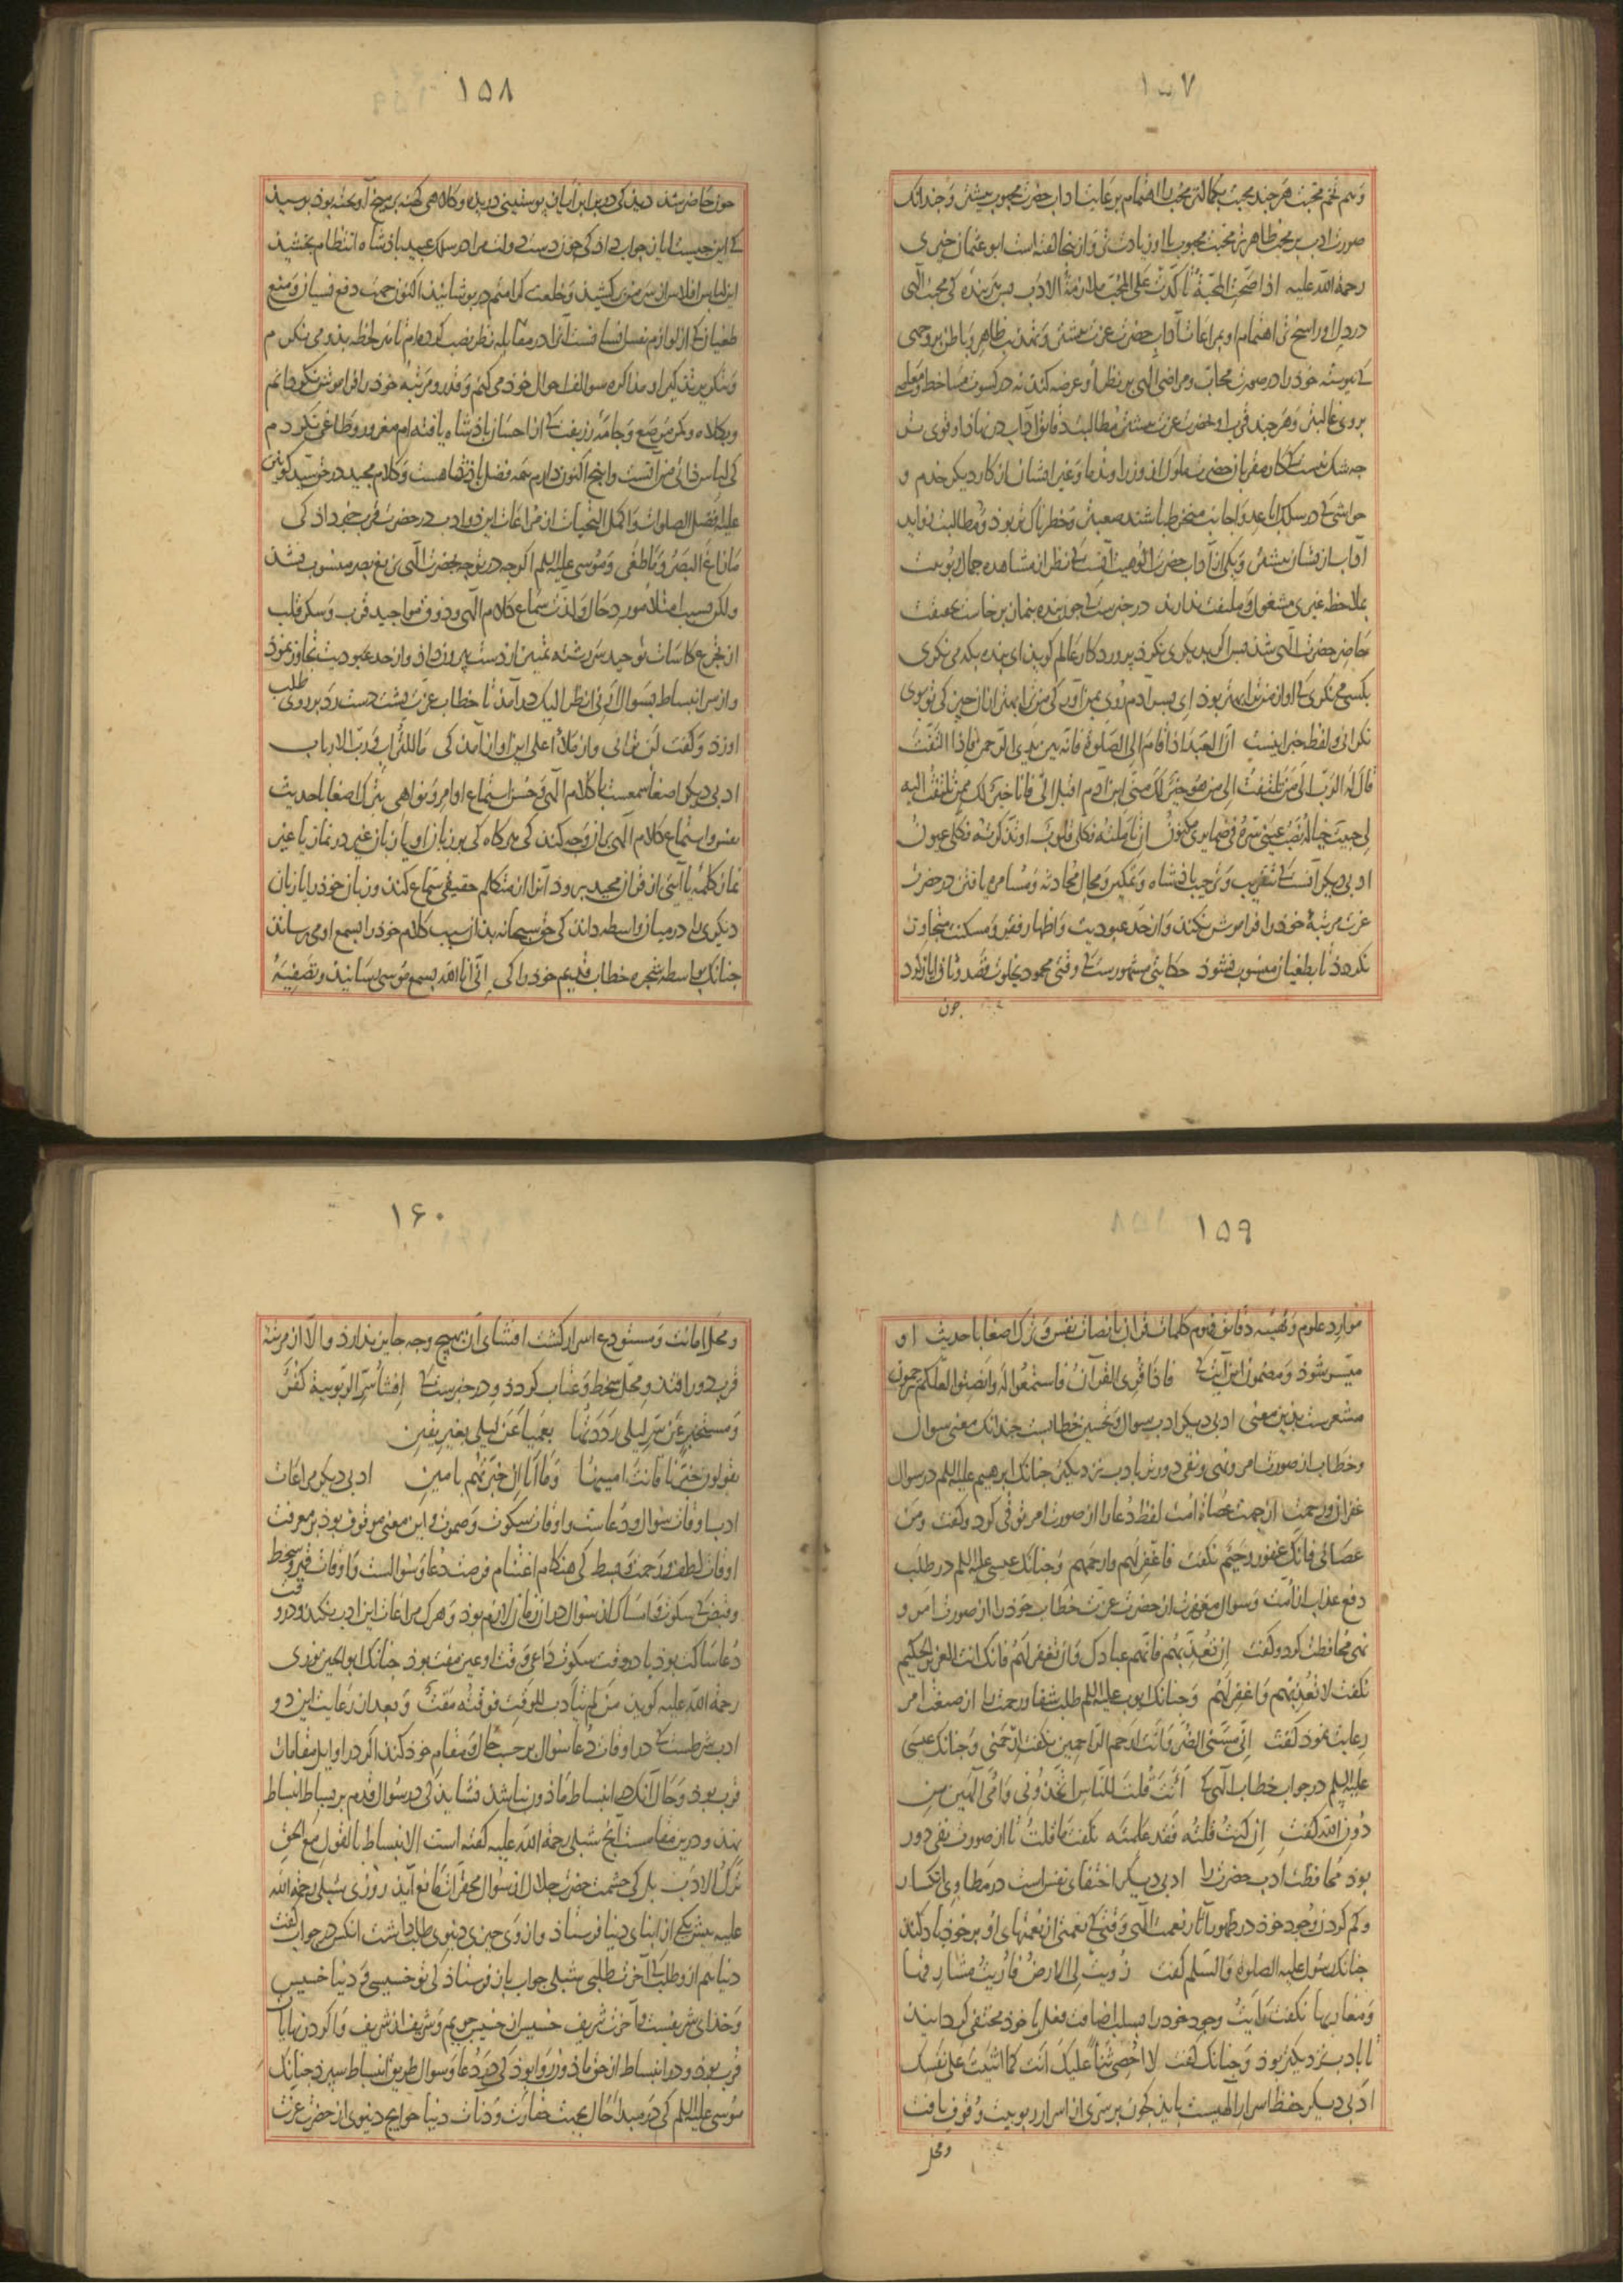 ۱۵۷
و هم تخم محبت هرچند محبت بکمالتر محب را اهتمام بر رعایت اداب حضرت محبوب بیشتر و چندانک
صورت ادب بر محب ظاهرتر محبت محبوب با او زیادت تر و از ینجا گفته است ابو عثمان حیری
رحمة الله علیه اذا صحت المحبة تاکدت علی المحب ملازمة الادب پس هر بنده کی محبت الهی
در دل او راسخ تر اهتمام او بمراعات آداب حضرت عزت بیشتر و تهذیب ظاهر و باطن بر وجهی
کی پیوسته خود را در صورت محاب و مراضی الهی بر نظر او عرضه کند نه در کسوت مساخط و
بروی غالبتر و هر چند قرب او بحضرت عزت بیشتر مطالبت دقایق آداب در نهاد او قوی تر
چه شک نیست کی کار مقربان حضرت ملوک از وزرا و ندما و غیر ایشان از کار دیگر خدم و
حواشی کی در سلک اباعد و اجانب منخرط باشند صعبتر و خطرناک تر بود و مطالبت بواید
آداب از یشان بیشتر و یکی از آداب حضرت الوهیت آنست کی نظر از مشاهده جمال ربوبیت
بملاحظه غیری مشغول و ملتفت ندارند در خبرست کی چون بنده بنماز برخاست بحقیقت
حاضر حضرت الهی شد پس اگر بدیگری نگرد پروردگار عالم گوید ای بنده بکه می نگری
بکسی می نگری کی او از من ترا بهتر بود ای پسر آدم روی بمن آور کی من ترا بهتر از آن چیز کی تو بوی
نگرانی و لفظ خبر اینست ان العبد اذا قام الی الصلوة فانه بین یدی الرحمن فاذا التفت
قال له الرب الی من تلتفت الی من هو خیر لک منی ابن ادم اقبل الی فانا خیر لک ممن تلتفت الیه
لی حبیب خیاله نصب عینی سره فی ضمایری مکنون ان تاملته فکلی قلوب او تذکرته فکلی عیون
ادبی دیگر آنست کی بتقریب و ترحیب پادشاه و تمکین و مجال محادثه و مسامره یافتن در حضرت
عزت مرتبهٔ خود را فراموش نکند و از حد عبودیت و اظهار فقر و مسکنت متجاوز
نگردد تا بطغیان منسوب نشود حکایتی مشهورست کی وقتی محمود بخلوت قصد وثاق ایاز کرد
چون
۱۵۸
چون حاضر شد دید کی در برابر ایاز پوستینی دریده و کلاهی کهنه بر میخ آویخته بود پرسید
کی این چیست ایاز جواب داد کی چون دست دولت مرا در سلک عبید پادشاه انتظام بخشید
این لباس افلاس از سر من بر کشید و خلعت کرامتم در پوشانید اکنون جهت دفع نسیان و منع
طغیان کی از لوازم نفس انسانیست آنرا در مقابله نظر نصب کرده ام تا هر لحظه بدو می نگرم
و بتکریر تذکیر او مذاکره سوالف احوال خود می کنم و قدر و مرتبه خود را فراموش نکنم و دانم
و بکلاه و کمر مرصع و جامه زربفت کی از احسان پادشاه یافته ام مغرور و طاغی نگردم
کی لباس ذاتی من آنست و آنچ اکنون دارم همه فضل پادشاهست و کلام مجید در حق سید کونین
علیه افضل الصلوات و اکمل التحیات از مراعات این دو ادب در حضرت قرب خبر داد کی
ما زاغ البصر و ما طغی و موسی علیه السلم اگرچه در توجه بحضرت الهی بزیغ بصر منسوب نشد
ولکن بسبب امتلا مورد حال و لذت سماع کلام الهی و ذوق مواجید قرب و سکر قلب
از تجرع کاسات توحید سر رشته تمییز از دست بیرون داد و از حد عبودیت تجاوز نمود
و از سر انبساط بسوال ارنی انظر الیک در آمد تا خطاب عزت پشت دست رد بر روی طلب
او زد و گفت لن ترانی و از ملأ اعلی این آواز آمد کی ما للتراب و رب الارباب
ادبی دیگر اصغا سمعست با کلام الهی و حسن استماع اوامر و نواهی بترک اصغا با حدیث
نفس و استماع کلام الهی از وجه کند کی هرگاه کی بر زبان او یا زبان غیر در نماز یا غیر
نماز کلمه یا آیتی از قرآن مجید برود آنرا از متکلم حقیقی سماع کند و زبان خود را یا زبان
دیگری را در میان واسطه داند کی حق سبحانه بدان سبب کلام خود را بسمع او می رساند
چنانک بواسطه شجره خطاب قدیم خود را کی انی انا الله بسمع موسی رسانید و تصفیه
۱۵۹
موارد علوم و تهیئه دقایق فهوم کلمات قرآن بانصات نفس و ترک اصغا با حدیث او
میسر شود و مضمون این آیت کی فاذا قری القرآن فاستمعوا له وانصتوا لعلکم ترحمون
مشعرست بدین معنی ادبی دیگر ادب سوال و تحسین خطابست چندانک معنی سوال
و خطاب از صورت امر و نهی و نفی دورتر بادب نزدیکتر چنانک ابرهیم علیه السلم در سوال
غفران و رحمت از جهت عصاة امت لفظ دعا را از صورت امر توقی کرد و گفت و من
عصانی فانک غفور رحیم نگفت فاغفر لهم وارحمهم و چنانک عیسی علیه السلم در طلب
دفع عذاب از امت و سوال مغفرت از حضرت عزت خطاب خود را از صورت امر و
نهی محافظت کرد و گفت ان تعذبهم فانهم عبادک و ان تغفر لهم فانک انت العزیز الحکیم
نگفت لا تعذبهم واغفر لهم و چنانک ایوب علیه السلم طلب شفا و رحمت را از صیغت امر
رعایت نمود گفت انی مسنی الضر و انت ارحم الراحمین نگفت ارحمنی و چنانک عیسی
علیه السلم در جواب خطاب الهی کی أانت قلت للناس اتخذونی و امی الهین من
دون الله گفت ان کنت قلته فقد علمته نگفت ما قلت تا از صورت نفی دور
بود محافظت ادب حضرت را ادبی دیگر اختفای نفس است در مطاوی انکسار
و گم کردن وجود خود در ظهور آثار نعمت الهی وقتی کی نعمتی از نعمتهای او بر خود یاد کند
چنانک رسول علیه الصلوة والسلم گفت زویت لی الارض فاریت مشارقها
و مغاربها نگفت رایت وجود خود را بسلب اضافت فعل با خود مختفی گردانید
تا بادب نزدیکتر بود و چنانک گفت لا احصی ثناء علیک انت کما اثنیت علی نفسک
ادبی دیگر حفظ اسرار الهیست باید کی چون بر سری از اسرار ربوبیت وقوف یافت
و محل
۱۶۰
و محل امانت و مستودع اسرار گشت افشای آن بهیچ وجه جایز ندارد و الا از مرتبه
قرب دور افتد و محل سخط و عتاب گردد و در خبرست کی افشأ سر الربوبیة کفر
و مستخبر عن سر لیلی رددتها بعمیا عن لیلی بغیر یقین
یقولون خبرنا فانت امینها و ما انا ان خبرتهم بامین ادبی دیگر مراعات
ادب اوقات سوال و دعاست و اوقات سکوت و صموت و این معنی موقوف بود بر معرفت
اوقات لطف و رحمت و بسط کی هنگام اغتنام فرصت دعا و سوالست و اوقات قهر و سخط
و قبض کی سکوت و امساک از سوال در آن زمان لازم بود و هرک مراعات این ادب نکند و در وقت
دعا ساکت بود یا در وقت سکوت داعی وقت او عین مقت بود چنانک ابو الحسین نوری
رحمة الله علیه گوید من لم یتأدب للوقت فوقته مقت و بعد از رعایت این دو
ادب شرطست کی در اوقات دعا سوال بر حسب حال و مقام خود کند اگر در اوایل مقامات
قرب بود و حال آنک در انبساط ماذون نباشد نشاید کی در سوال قدم بر بساط انبساط
نهد و درین مقامست آنچ شبلی رحمة الله علیه گفته است الانبساط بالقول مع الحق
ترک الادب بل کی حشمت حضرت جلال از سوال محقرات مانع آید روزی شبلی رحمة الله
علیه پیش یکی از ابنای دنیا فرستاد و از وی چیزی دنیوی طلب داشت آنکس در جواب گفت
دنیا هم از و طلب کی آخرت طلبی شبلی جواب باز فرستاد کی تو خسیسی و دنیا خسیس
و خدای شریفست و آخرت شریف خسیس از خسیس جویم و شریف از شریف و اگر در نهایات
قرب بود و در انبساط از حق ماذون روا بود کی در دعا و سوال طریق انبساط سپرد چنانک
موسی علیه السلم کی در مبدأ حال بجهت حقارت و دنأت دنیا حوایج دنیوی از حضرت عزت